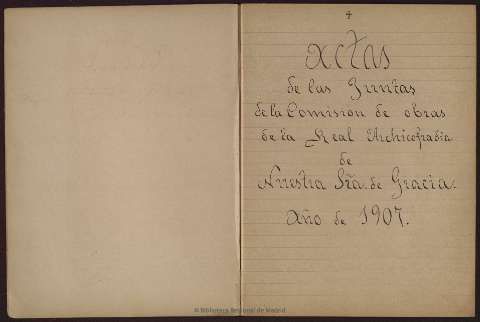 ✝
Actas
de las Juntas
de la Comision de obras
de la Real Archicofradia
de
Nuestra Sra. de Gracia.
Año de 1907.
© Biblioteca Regional de Madrid